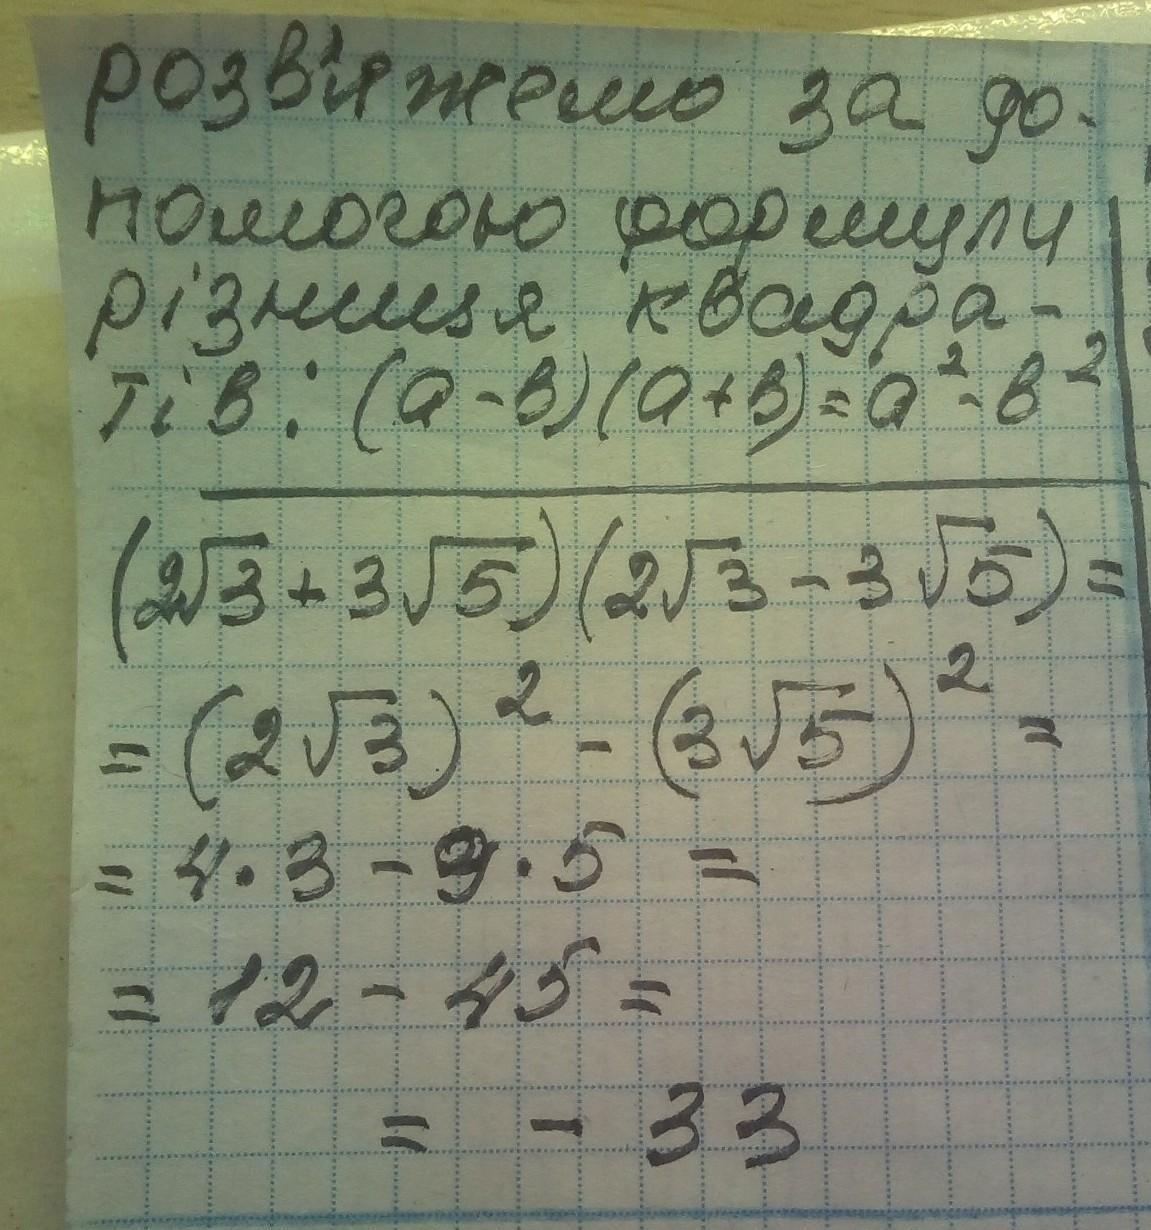 розв'яжемо за до-
помогою формули
різниця квадра-
тів: (a-b)(a+b)=a²-b²
(2√3+3√5)(2√3-3√5)=
=(2√3)²-(3√5)²=
=4·3-9·5=
=12-45=
=-33